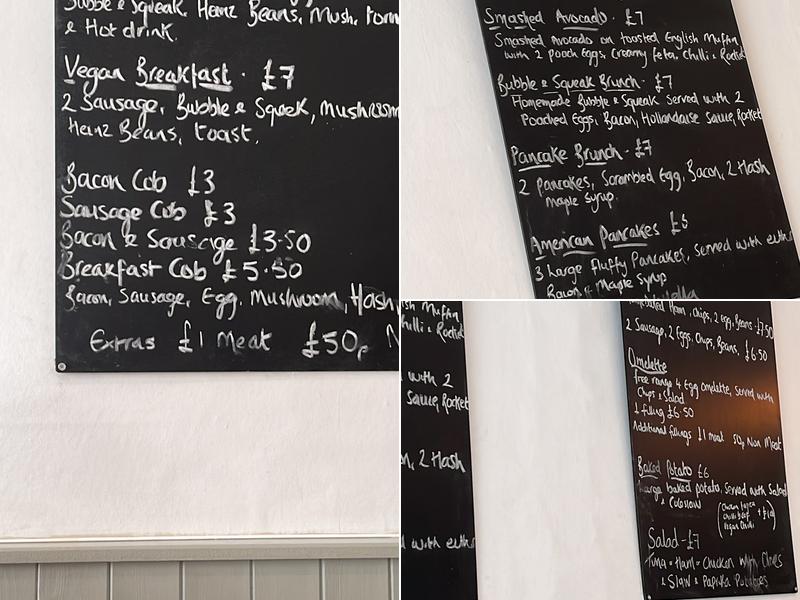 Bubble & Squeak, Heinz Beans, Mush,
& Hot drink.
Vegan Breakfast · £7
2 Sausage, Bubble & Squeek, mushroom
Heinz Beans, toast.
Bacon Cob £3
Sausage Cob £3
Bacon & Sausage £3·50
Breakfast Cob £5·50
Bacon, Sausage, Egg, Mushroom, Hash
Extras £1 Meat £50p N
Smashed Avocado · £7
Smashed Avocado on toasted English Muffin
with 2 Poach Eggs, Creamy feta, Chilli & Rocket
Bubble & Squeak Brunch · £7
Homemade Bubble & Squeak Served with 2
Poached Eggs, Bacon, Hollandaise Sauce, Rocket
Pancake Brunch · £7
2 Pancakes, Scrambled Egg, Bacon, 2 Hash
maple Syrup.
American Pancakes £6
3 Large fluffy Pancakes, Served with eith
Bacon & Maple Syrup
sh Muffin
hilli & Rocket
with 2
Sauce, Rocket
n, 2 Hash
d with eith
Ham, Chips, 2 Egg, Beans £7·50
2 Sausage, 2 Eggs, Chips, Beans, £6·50
Omelette
free range 4 Egg Omelette, Served with
Chips & Salad
1 filling £6·50
Additional fillings £1 meat 50p Non Meat
Baked Potato £6
Large baked potato, Served with Salad
& Coleslaw
Salad - £7
Tuna - Ham - Chicken with Olives
& Slaw & Paprika Potatoes